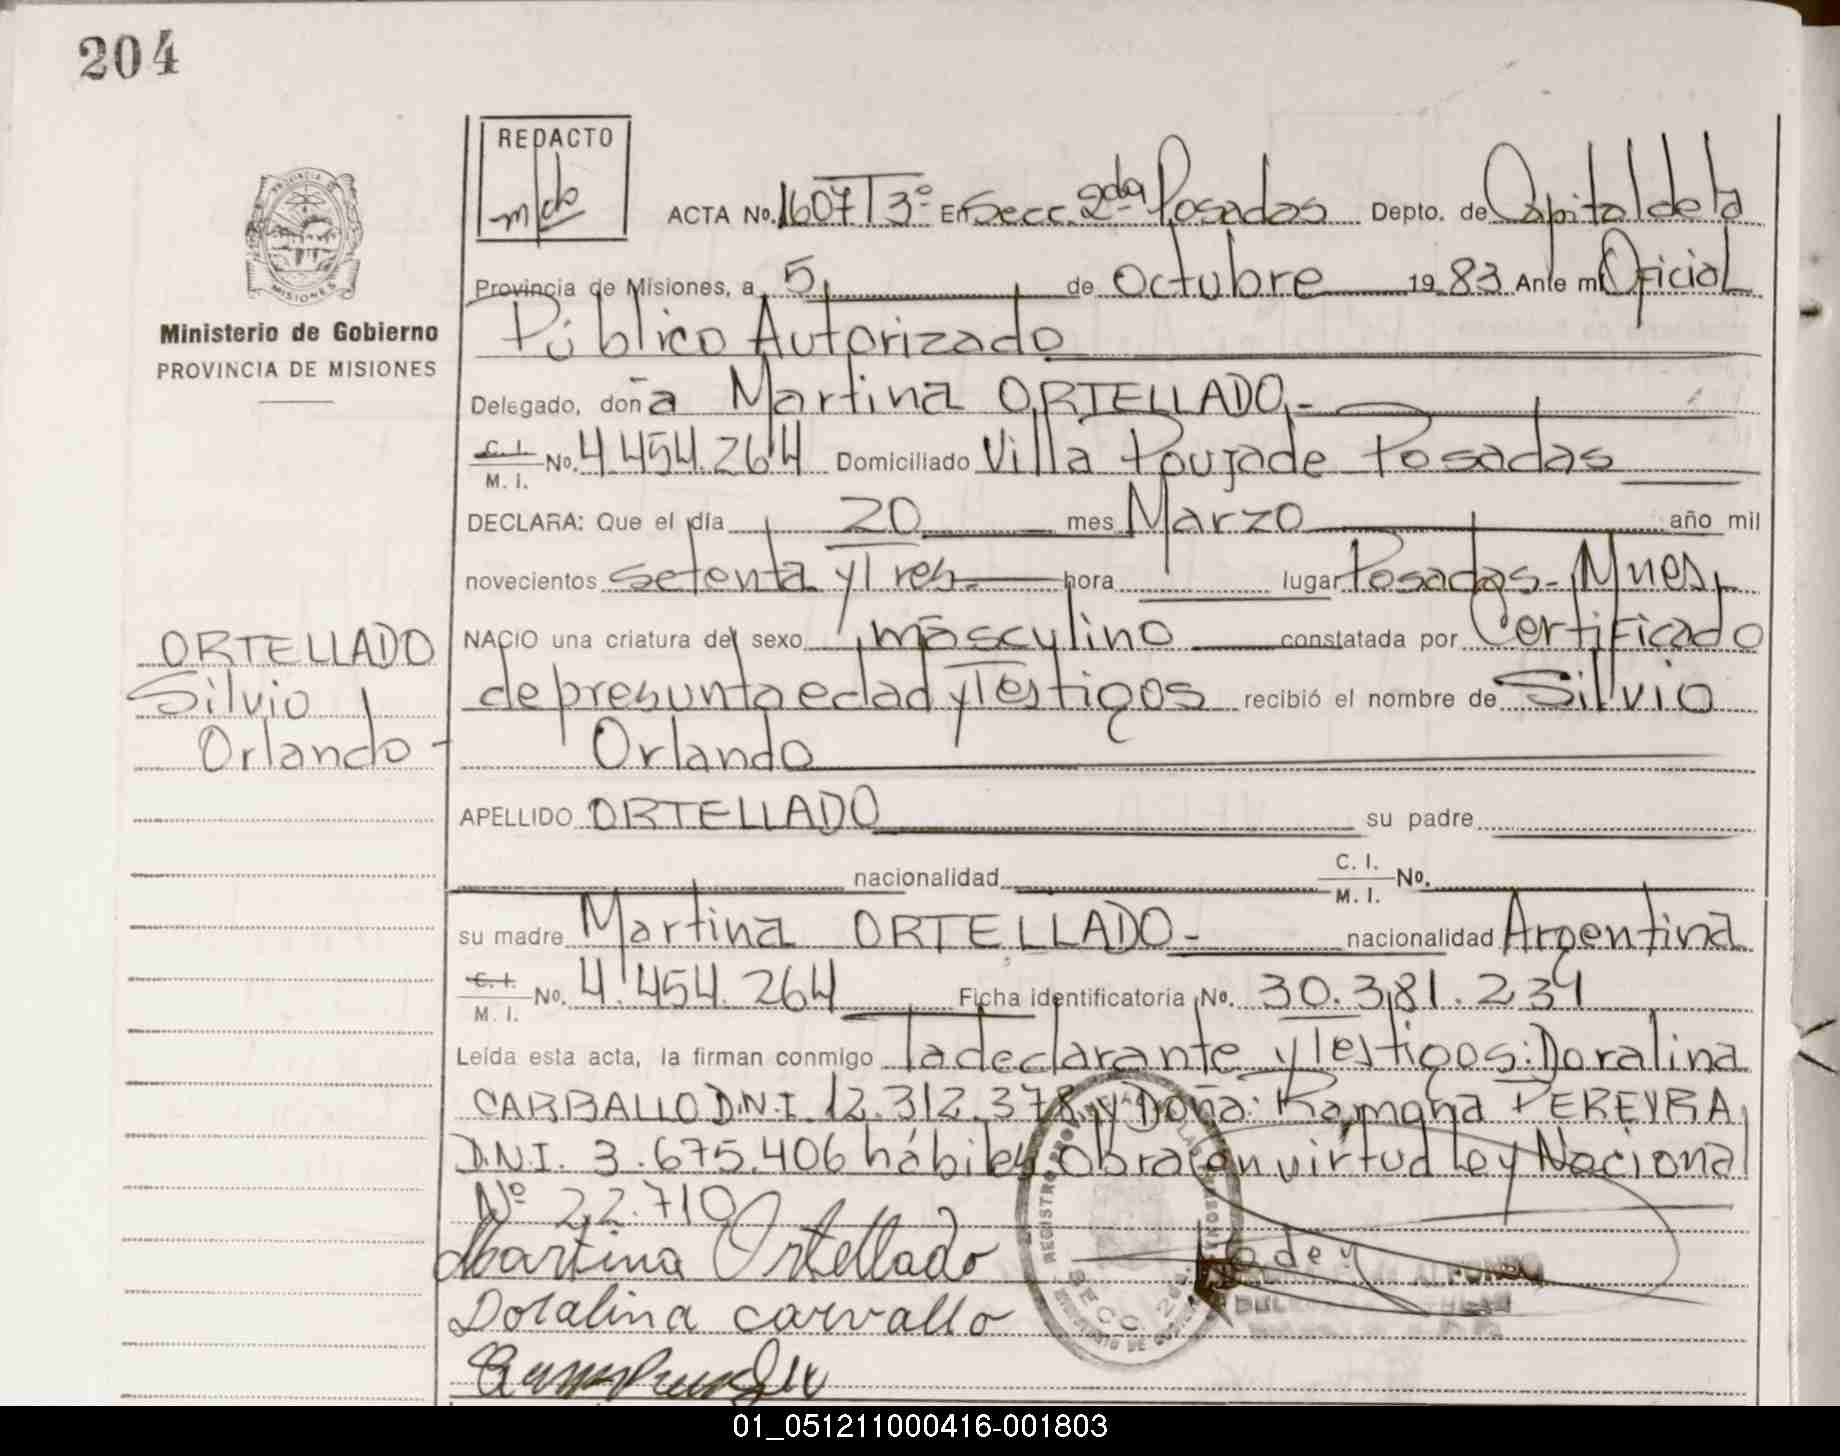 204
REDACTO
ACTA No. 1607 T 3º En Secc. 2da Posadas Depto. de Capital de la
Provincia de Misiones, a 5 de Octubre 1983 Ante mi Oficial
Público Autorizado
Ministerio de Gobierno
PROVINCIA DE MISIONES
Delegado, doña Martina ORTELLADO.-
C. I. M. I. No. 4.454.264 Domiciliado Villa Poujade Posadas
DECLARA: Que el día 20 mes Marzo año mil
novecientos setenta y Tres hora lugar Posadas - Mnes,
NACIO una criatura del sexo masculino constatada por Certificado
de presunta edad y Testigos recibió el nombre de Silvio
Orlando
ORTELLADO
Silvio
Orlando -
APELLIDO ORTELLADO su padre
nacionalidad C. I. M. I. No.
su madre Martina ORTELLADO - nacionalidad Argentina
C. I. M. I. No. 4.454.264 Ficha identificatoria No. 30.381.234
Leída esta acta, la firman conmigo la declarante y Testigos: Doralina
CARBALLO D.N.I. 12.312.378 y Doña: Ramona PEREYRA
D.N.I. 3.675.406 hábiles Obra en virtud Ley Nacional
Nº 22.710
Martina Ortellado
Doralina carvallo
SECC 2da.
01_051211000416-001803